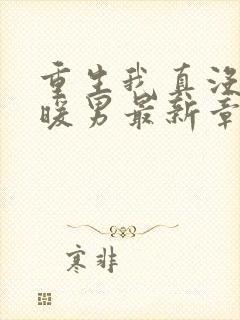 重生我真没
暖男最新章
寒非